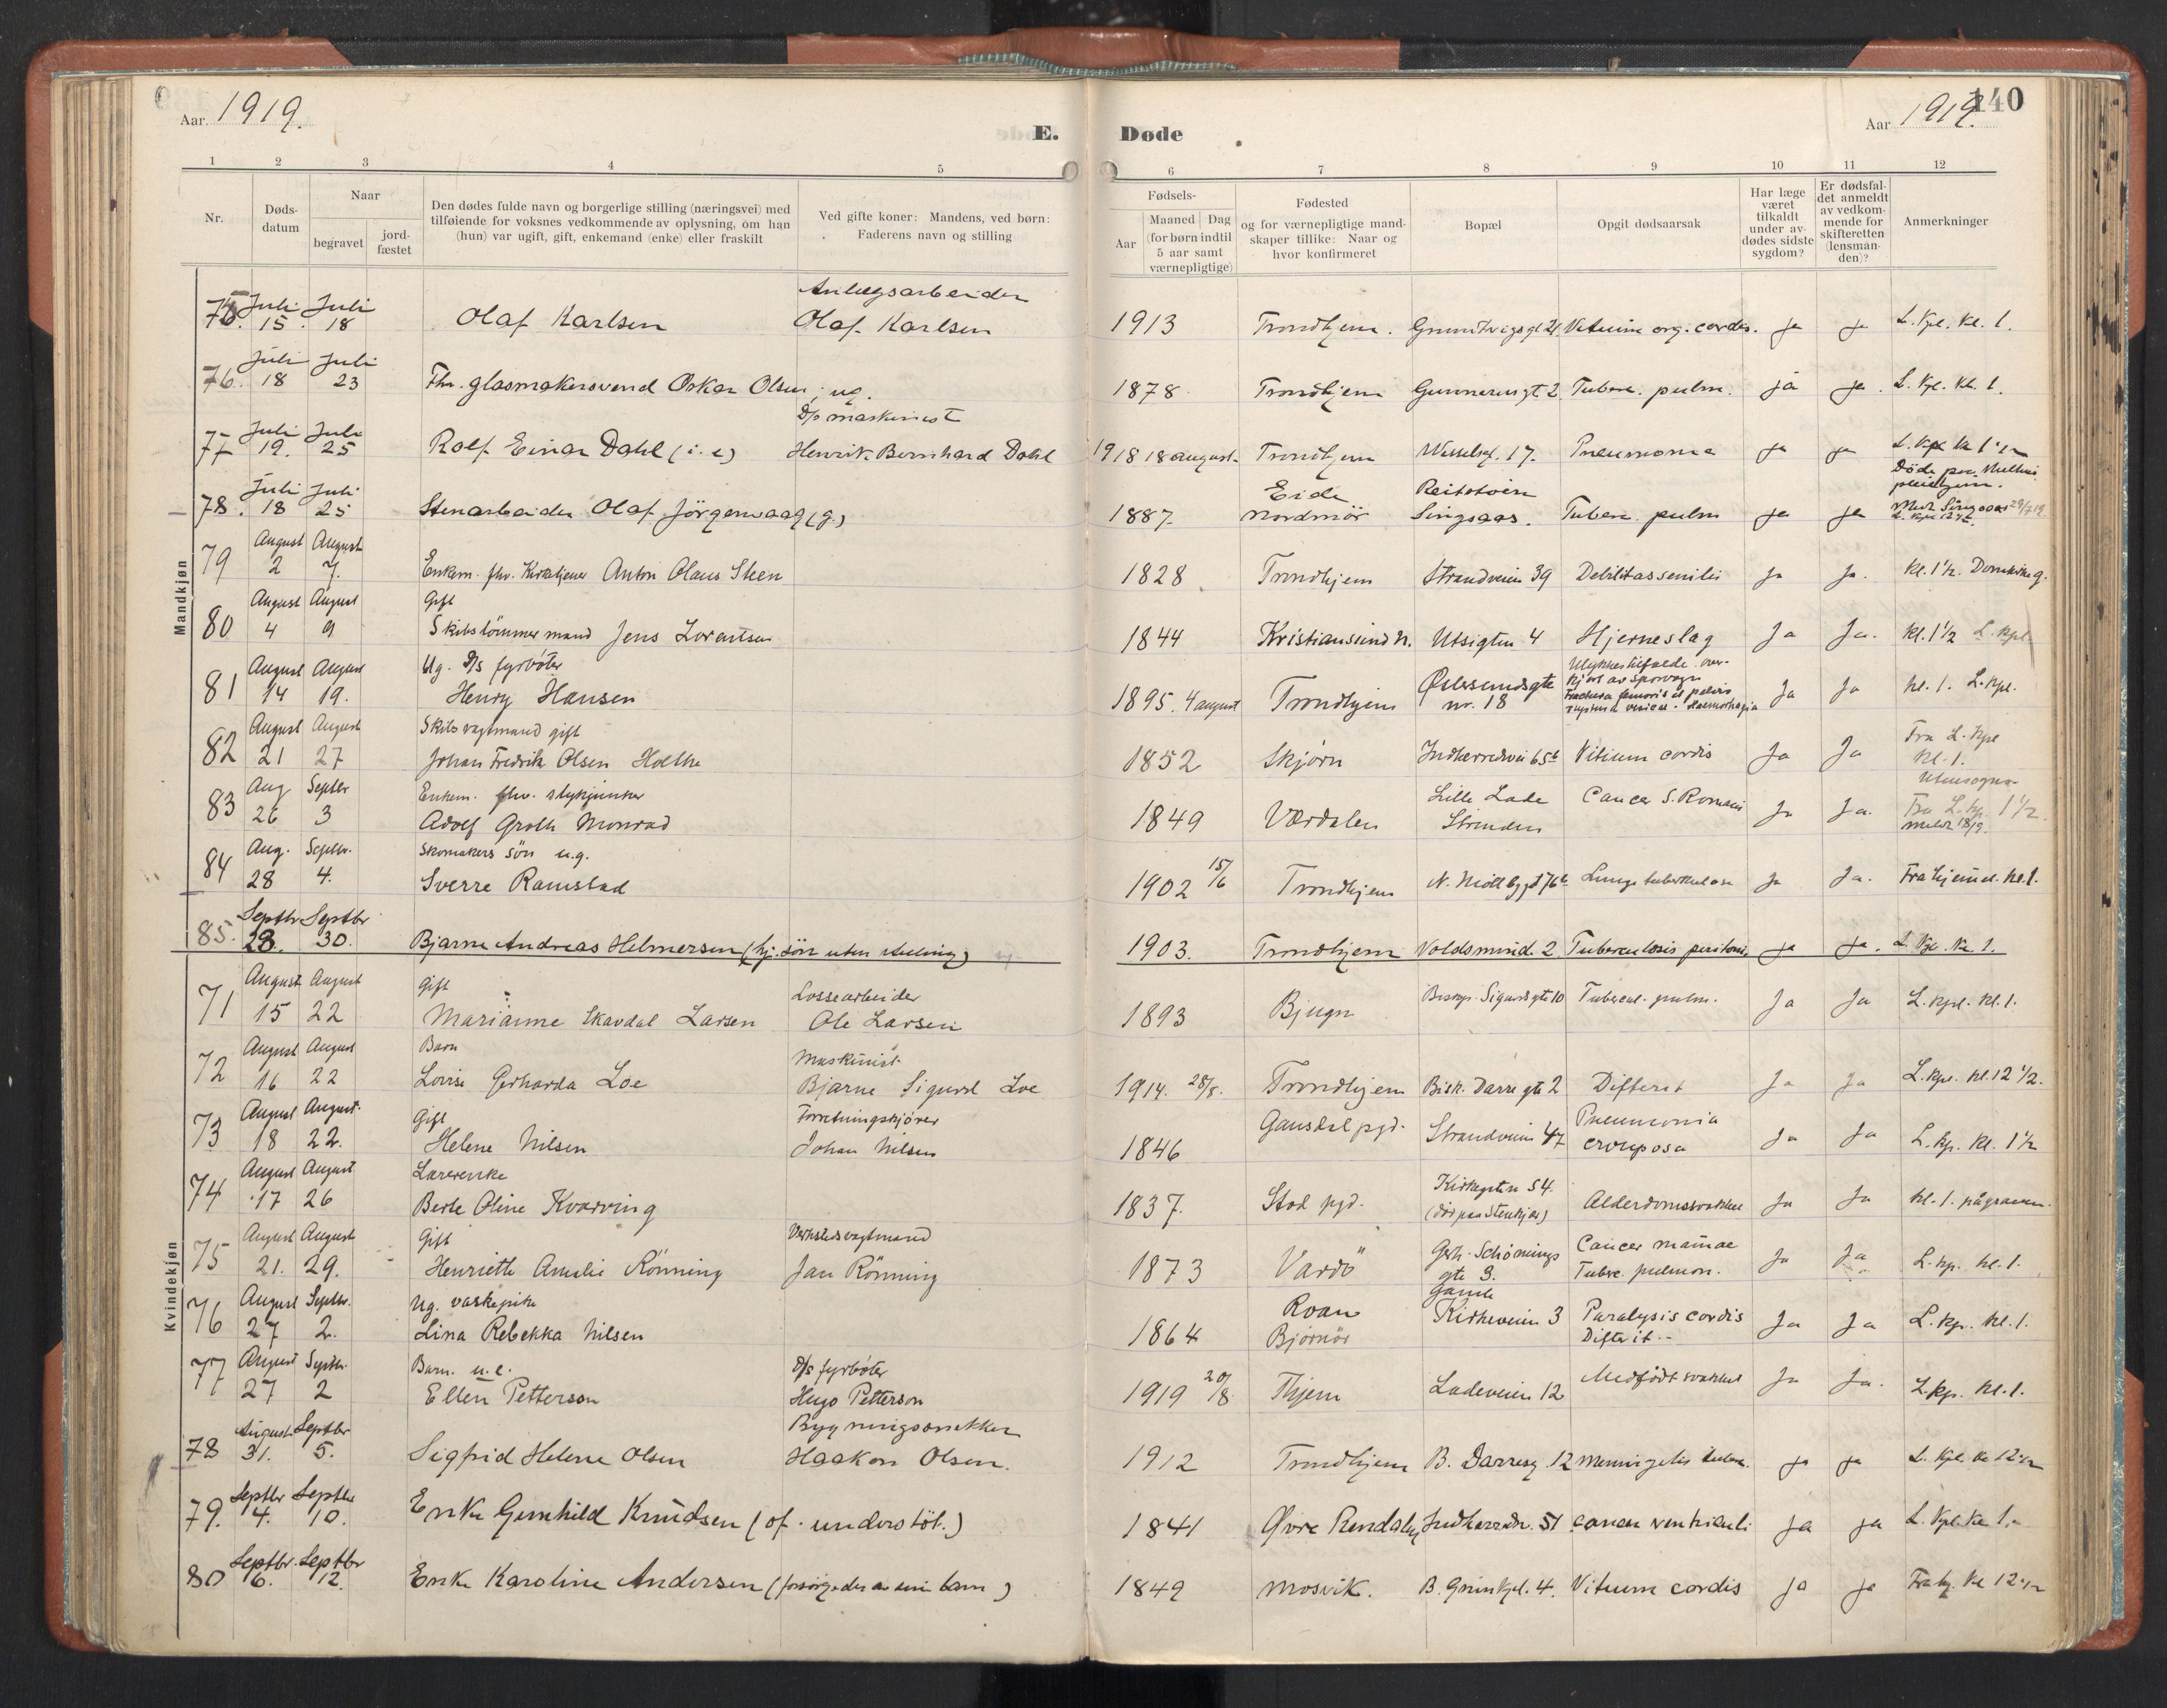 Aar. 1919.
E. Døde
Aar 1919.
140
1 2 3 4 5 6 7 8 9 10 11 12
Nr.
Døds-
datum
Naar
begravet
jord-
fæstet
Den dødes fulde navn og borgerlige stilling (næringsvei) med
tilføiende for voksnes vedkommende av oplysning, om han
(hun) var ugift, gift, enkemand (enke) eller fraskilt
Ved gifte koner: Mandens, ved børn:
Faderens navn og stilling
Fødsels-
Aar
Maaned Dag
(for børn indtil
5 aar samt
værnepligtige)
Fødested
og for værnepligtige mand-
skaper tillike: Naar og
hvor konfirmeret
Bopæl
Opgit dødsaarsak
Har læge
været
tilkaldt
under av-
dødes sidste
sygdom?
Er dødsfal-
det anmeldt
av vedkom-
mende for
skifteretten
(lensman-
den)?
Anmerkninger
Mandkjøn
Juli Juli Anlægsarbeider
75. 15. 18 Olaf Karlsen Olaf Karlsen 1913 Trondhjem. Grundtvigsgt 21. Vitium org. cordis. ja ja L. Kpl. Kl. 1.
Juli Juli
76. 18 23 Fhv. glasmakersvend Oskar Olsen, ug. 1878 Trondhjem Gunnerusgt 2. Tuberc. pulm. ja ja. L. Kpl. Kl. 1.
Juli Juli D/s maskinist
77 19. 25 Rolf Einar Dahl (i. e) Henrik Bernhard Dahl 1918 18 august. Trondhjem Wesselsg. 17. Pneumonia ja ja L. Kpl. Kl. 1 1/2
Juli Juli Eide Reitstøen Døde paa pleiehjem.
78. 18 25 Stenarbeider Olaf Jörgenvaag (g.) 1887. Nordmör Singsaas. Tuberc. pulm ja ja Meldt Singsaas
August August
79 2 7. Enkem. fhv. Kirketjener Anton Olaus Steen 1828 Trondhjem Strandveien 39 Debilitas senilis ja ja. Kl. 1 1/2. Domkirkeg.
August August Gift
80 4 9 Skibstömmermand Jens Lorentsen 1844 Kristiansund N. Utsigten 4 Hjerneslag Ja Ja. Kl. 1 1/2 L. kpl.
August August Ug. D/s fyrbøter Ulykkestilfælde. over-
kjørt av sporvogn
81 14 19. Henry Hansen 1895. 4 august Trondhjem Østersundsgte nr. 18 Fractura femoris et pelvis Ja Ja kl. 1. L. Kpl.
ruptura vesicae. Haemorhagia
August August Skibsvagtmand gift Fra L. Kpl
82 21 27 Johan Fredrik Olsen Holthe 1852 Skjørn Indherredsvei 65b Vitium cordis Ja Ja Kl. 1.
Aug Septbr Enkem. fhv. stykjunker Lille Lade Utensogns.
83 26 3 Adolf Groth Monrad 1849 Værdalen Strinden Cancer S. Romani Ja Ja. Fra L. kp. 1 1/2
Meldt 18/9.
Aug. Septbr. Skomakers sön u.g.
84 28 4. Sverre Ramstad 1902 15/6 Trondhjem N. Möllebggt 76b Lungetuberkulose Ja Ja. Fra hjemmet kl. 1.
Septbr Septbr
85. 28. 30. Bjarne Andreas Helmersen (hj. sön uten stilling) 1903. Trondhjem Voldsmind. 2 Tuberculosis peritonei ja ja. L. Kpl. Kl. 1.
Kvindekjøn
August August Gift Lossearbeider
71 15 22 Marianne Skavdal Larsen Ole Larsen 1893 Bjugn Biskop Sigurdsgte 10 Tubercul. pulm. Ja Ja L. Kpl. Kl. 1.
August August Barn Maskinist
72 16 22 Lovise Gerharda Loe Bjarne Sigurd Loe 1914. 28/8. Trondhjem Bisk. Darresgte 2 Difterit Ja Ja L. Kpl. Kl. 12 1/2.
August August. Gift Forretningskjører
73 18 22. Helene Nilsen Johan Nilsen 1846 Gausdal pgd. Strandveien 47 Pneumonia crouposa Ja Ja L. kp. Kl. 1 1/2
August August Lærerenke
74 17 26 Berte Oline Kvarving 1837. Stod pgd. Kirkegaten 54. Alderdomssvakhet Ja Ja Kl. 1. på graven.
(död paa Stenkjær)
August August Gift Verkstedsvagtmand
75 21. 29. Henriette Amalie Rönning Jan Rönning 1873 Vardö Gerh. Schönings gte 3. Cancer mamae Ja Ja L. kp. kl. 1.
Tuberc. pulmon.
August Septbr. Ug. vaskepike Roan Gamle
76 27 2. Lina Rebekka Nilsen 1864 Bjørnör Kirkeveien 3 Paralysis cordis Ja Ja L. kp. Kl. 1.
Difterit.
August Septbr. Barn. u. e. D/s fyrbøter
77 27 2 Ellen Petterson Hugo Petterson 1919 20/8 Thjem Ladeveien 12 Medfødt svakhet Ja Ja. L. kp. Kl. 1.
August Septbr Bygningssnekker
78 31. 5. Sigfrid Helene Olsen Haakon Olsen. 1912 Trondhjem B. Darresg. 12 Meningitis tuberc. ja ja L. Kpl. Kl 12 1/2
Septbr Septbr
79. 4. 10. Enke Gunhild Knudsen (of. understöt.) 1841 Øvre Rendalen Indherredsv. 51 cancer ventriculi ja ja L. Kpl. Kl 1.
Septbr. Septbr
80 6. 12. Enke Karoline Andersen (forsörgedes av sine barn) 1849 Mosvik. B. Grimkjel. 4. Vitium cordis ja ja Fra hj. Kl 12 1/2